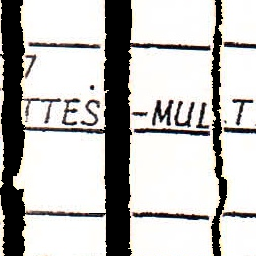 7
TTES -MUL T